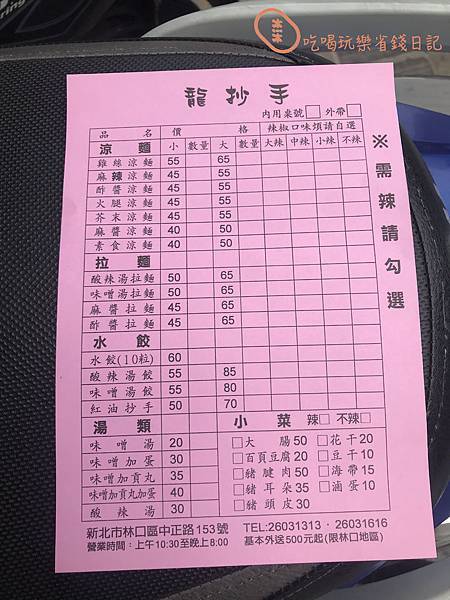 吃喝玩樂省錢日記
龍抄手
內用桌號□ 外帶□
品名 價格 辣椒口味煩請自選
涼麵 小 數量 大 數量 大辣 中辣 小辣 不辣
雞絲涼麵 55 65
麻辣涼麵 45 55
酢醬涼麵 45 55
火腿涼麵 45 55
芥末涼麵 45 55
麻醬涼麵 40 50
素食涼麵 40 50
拉麵
酸辣湯拉麵 50 65
味噌湯拉麵 50 65
麻醬拉麵 45 65
酢醬拉麵 45 65
水餃
水餃(10粒) 60
酸辣湯餃 55 85
味噌湯餃 55 80
紅油抄手 50 70
湯類
味噌湯 20
味噌加蛋 30
味噌加貢丸 35
味噌加貢丸加蛋 40
酸辣湯 30
小菜 辣□ 不辣□
□大腸50 □花干20
□百頁豆腐20 □豆干10
□豬腱肉50 □海帶15
□豬耳朵35 □滷蛋10
□豬頭皮30
※需辣請勾選
新北市林口區中正路153號 TEL:26031313．26031616
營業時間：上午10:30至晚上8:00 基本外送500元起(限林口地區)